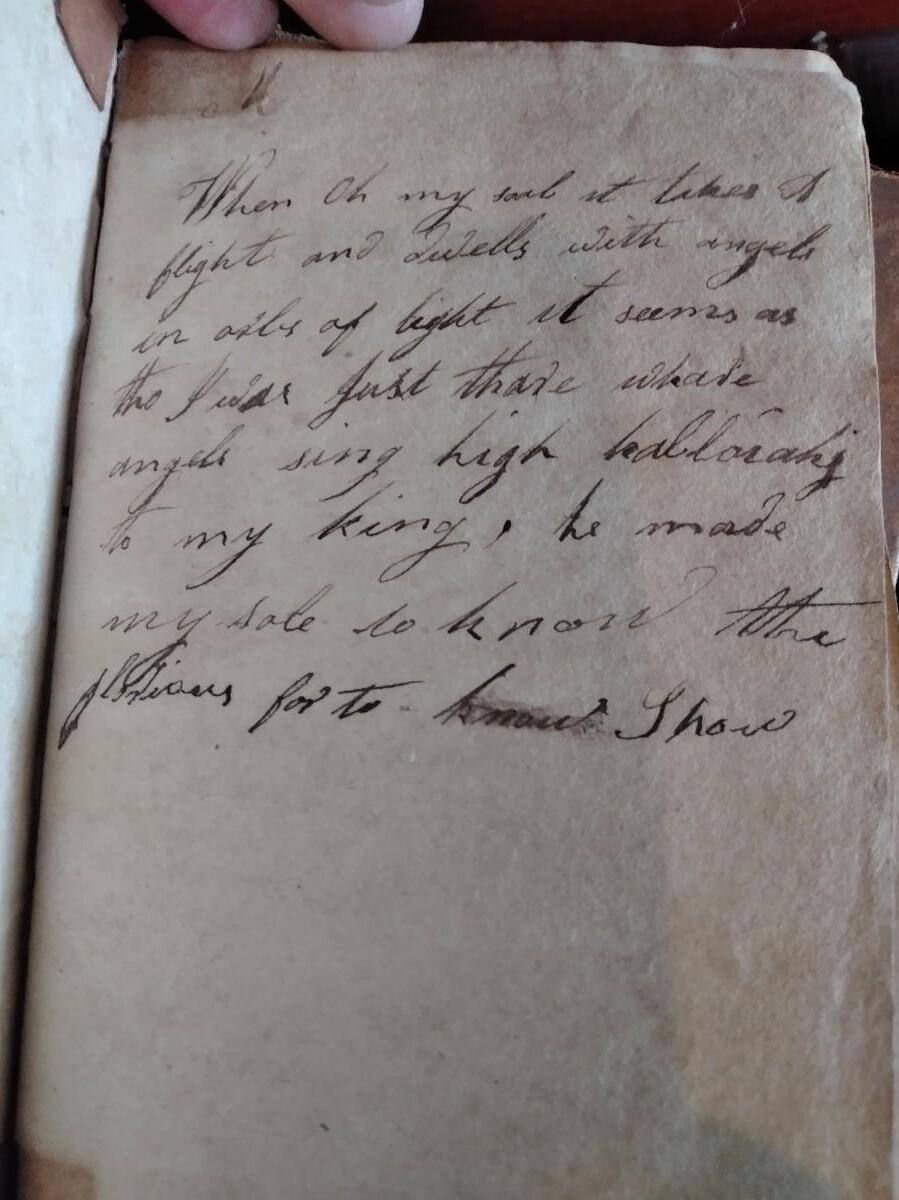 M
When Oh my soul it takes A
flight and dwells with angels
in of light it seems as
tho I was Just thare whare
angels sing high
to my king, he made
my sole to know the
glorious for to know Show